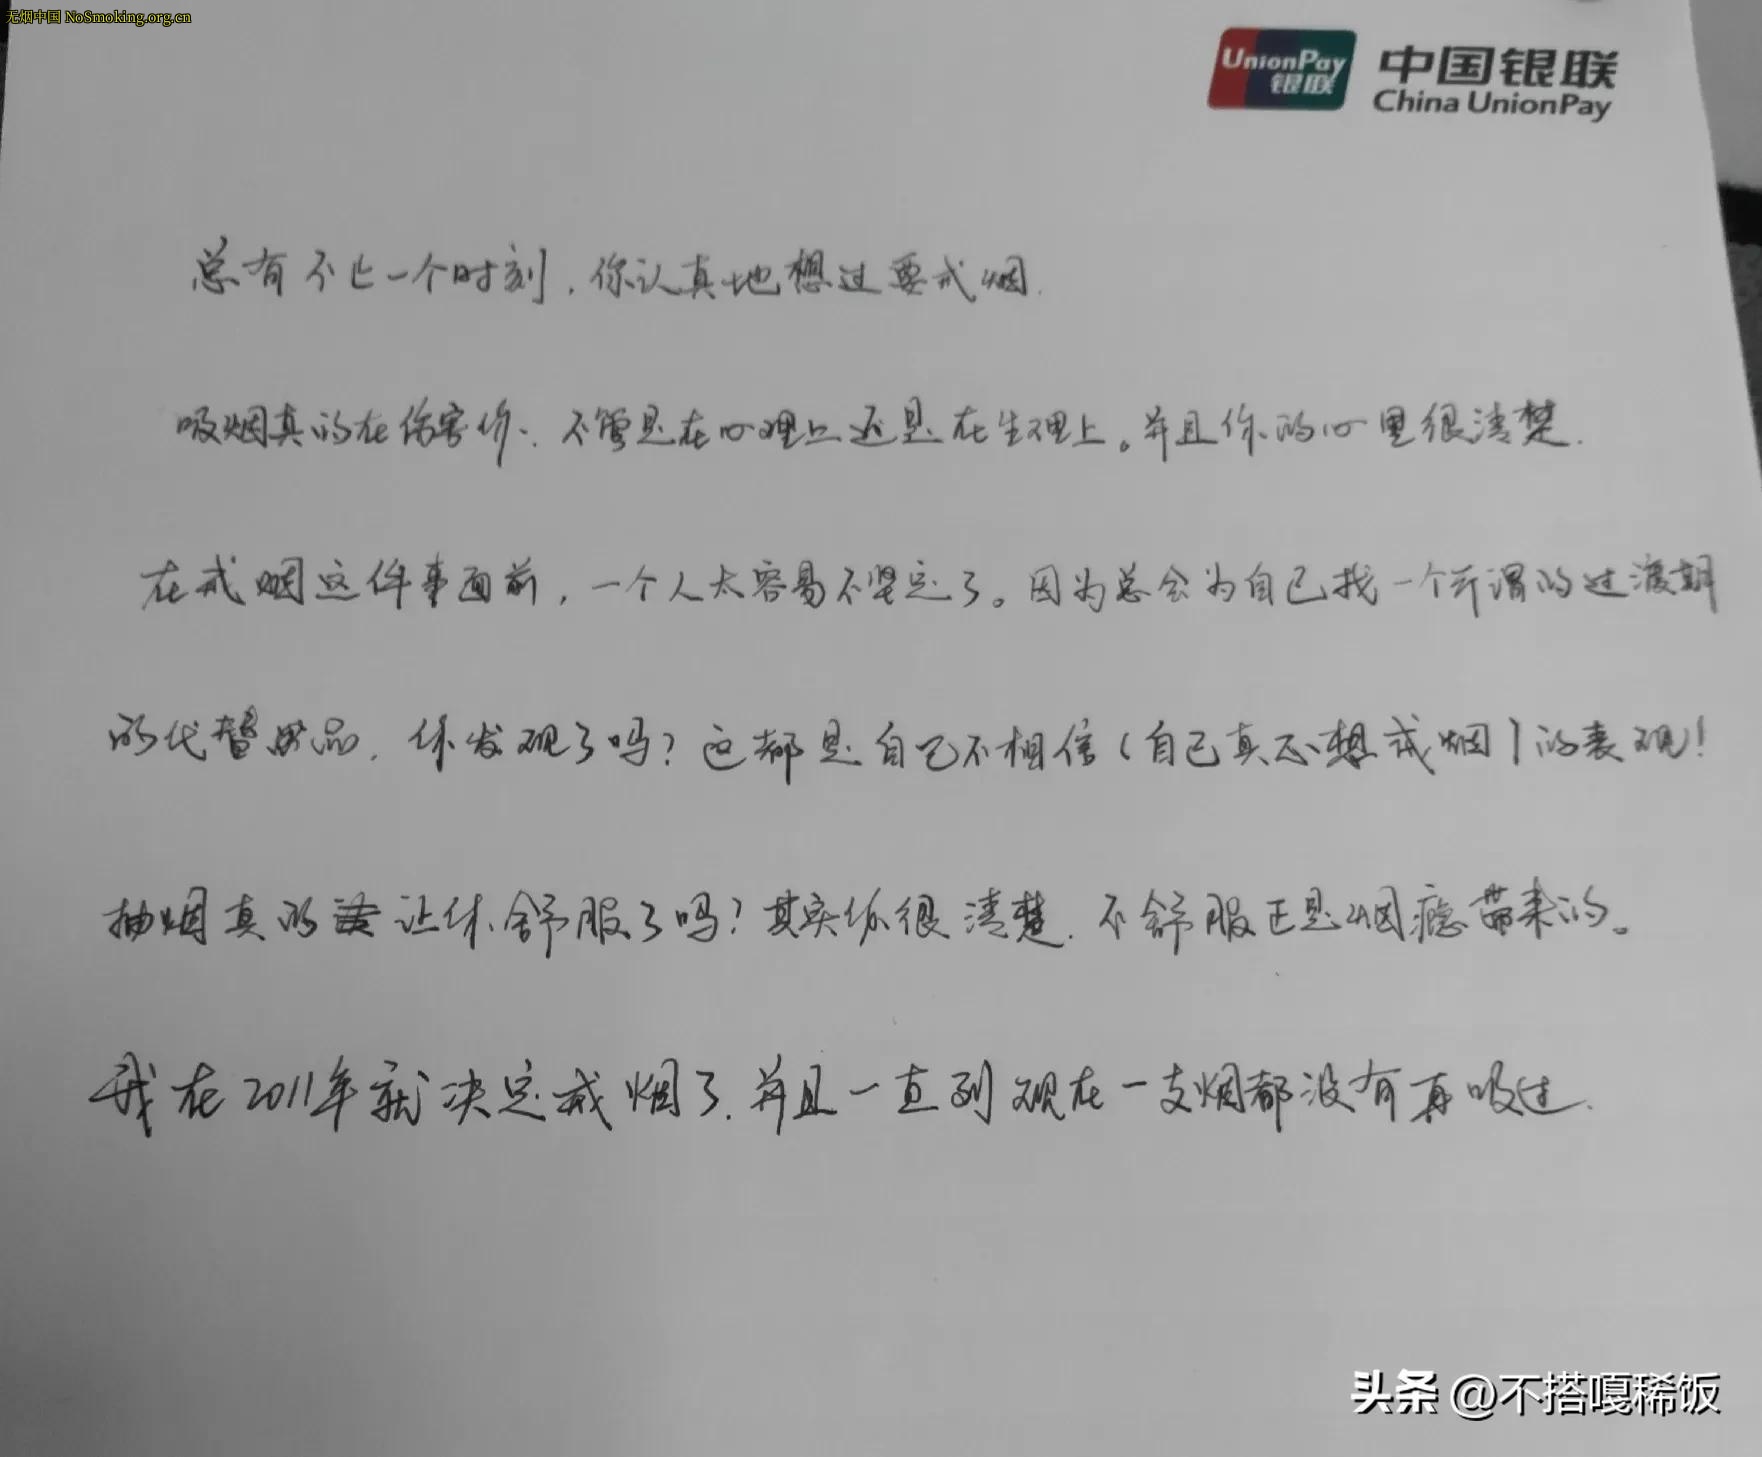 无烟中国 NoSmoking.org.cn
UnionPay
银联
中国银联
China UnionPay
总有不止一个时刻，你认真地想过要戒烟.
吸烟真的在伤害你、不管是在心理上还是在生理上。并且你的心里很清楚.
在戒烟这件事面前，一个人太容易不坚定了。因为总会为自己找一个所谓的过渡期
的代替用品，你发现了吗？这都是自己不相信(自己真正想戒烟)的表现！
抽烟真的让你舒服了吗？其实你很清楚.不舒服正是烟瘾带来的。
我在2011年就决定戒烟了.并且一直到现在一支烟都没有再吸过.
头条 @不搭嘎稀饭